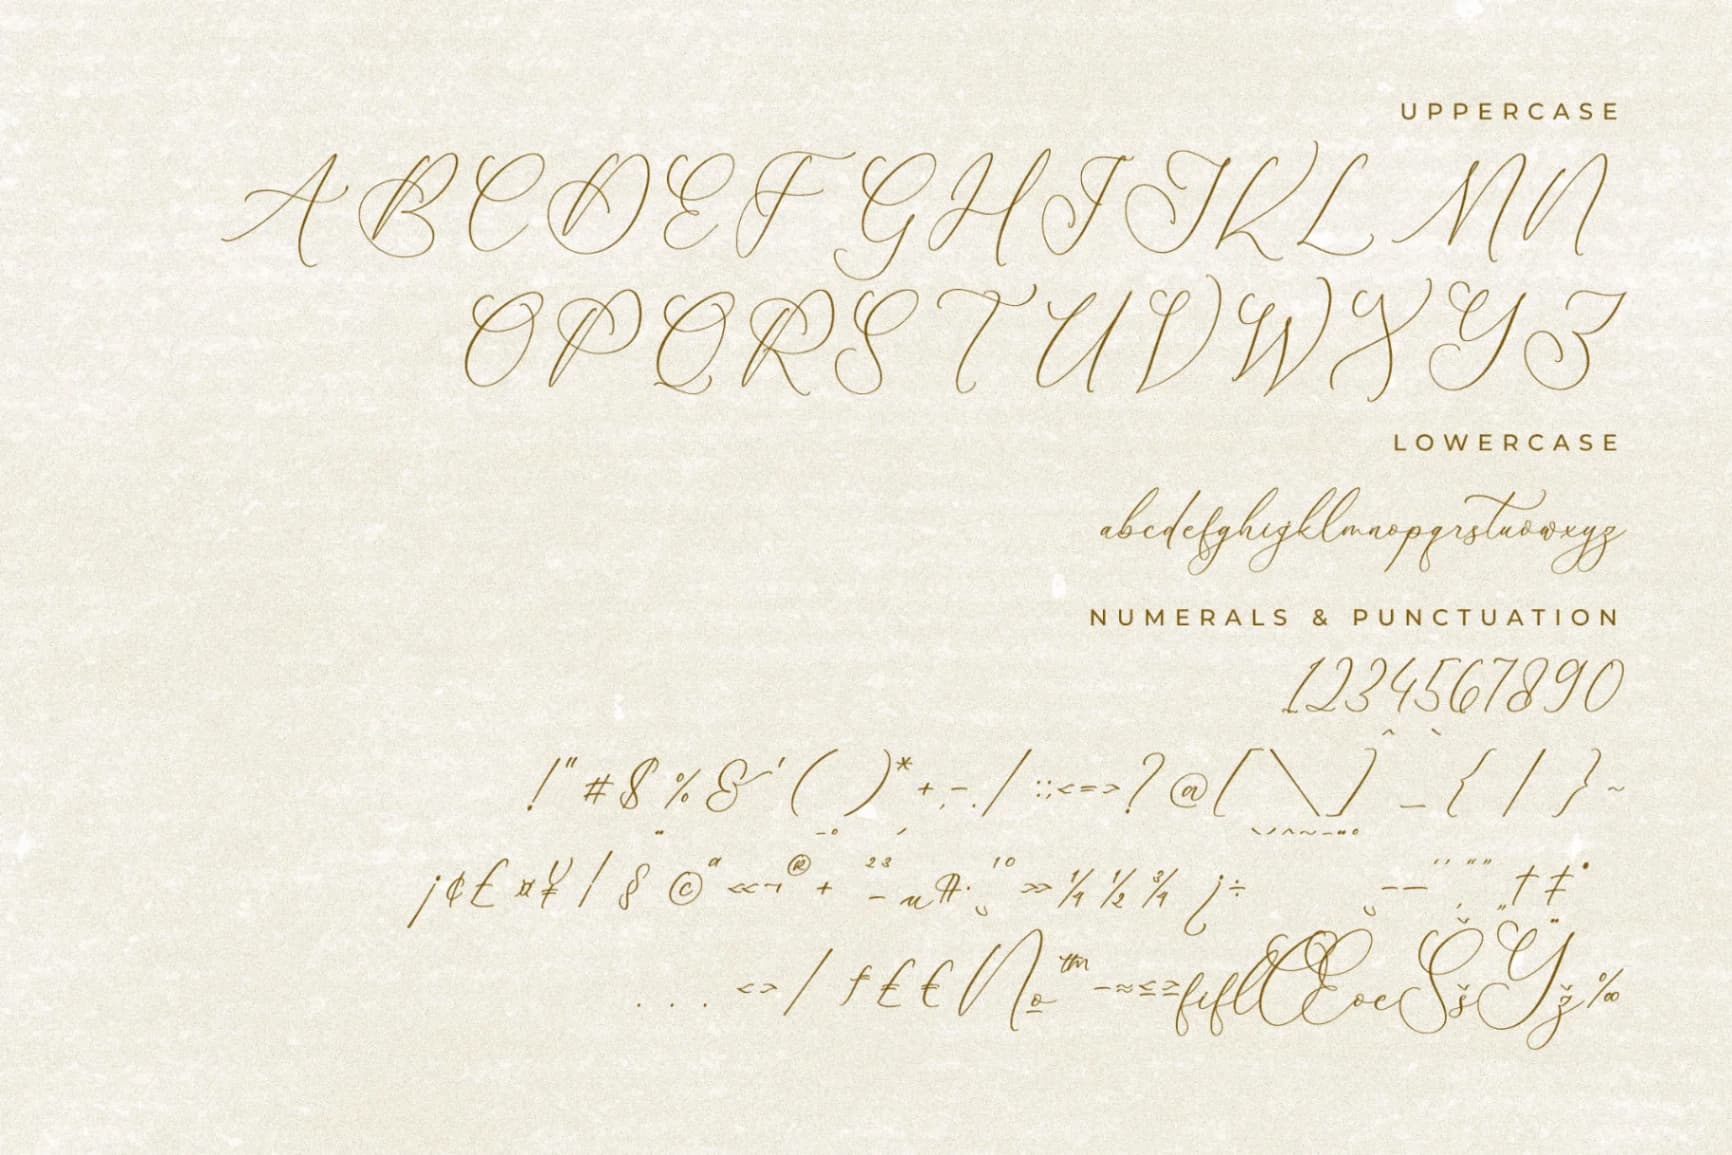 UPPERCASE
A B C D E F G H I J K L M N
O P Q R S T U V W X Y Z
LOWERCASE
abcdefghijklmnopqrstuvwxyz
NUMERALS & PUNCTUATION
1234567890
! " # $ % & ' ( ) * + , - . / : ; < = > ? @ [ \ ] ^ _ ` { | } ~
¡ ¢ £ ¤ ¥ | § ¨ © ª « ¬ ® ¯ ° + 2 3 ´ µ ¶ · ¸ 1 º » ¼ ½ ¾ ÷ – — ' ' , " " „ † ‡ •
. . . < > / ƒ £ € № ™ − ≈ ≤ ≥ fi fl Œ œ Š š Ÿ ž ‰